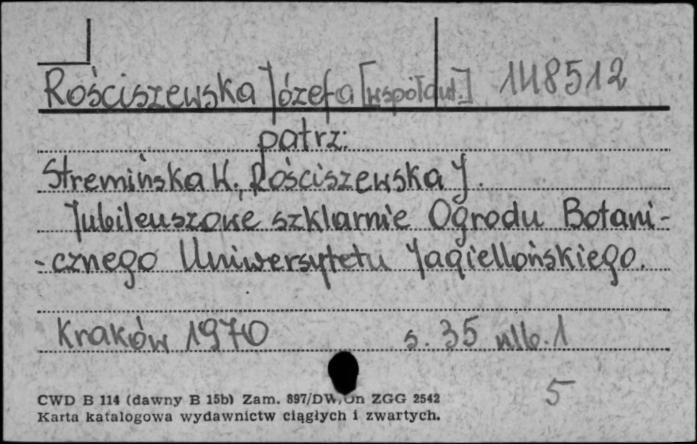 Rościszewska Józefa [współaut.] 148512
patrz:
Stremińska W., Rościszewska J.
Jubileuszowe szklarnie Ogrodu Botani-
-cznego Uniwersytetu Jagiellońskiego.
Kraków 1970 s. 35 nlb. 1
5
CWD B 114 (dawny B 15b) Zam. 897/DW/Dn ZGG 2542
Karta katalogowa wydawnictw ciągłych i zwartych.